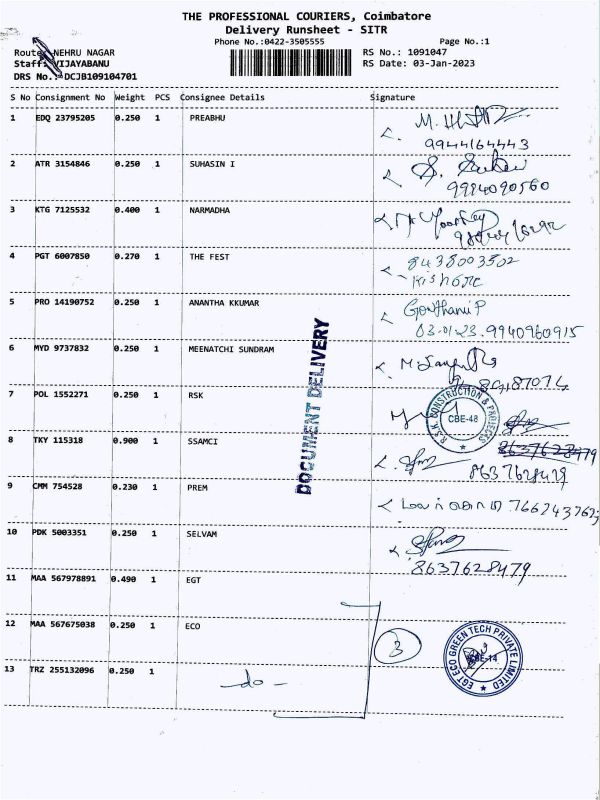 THE PROFESSIONAL COURIERS, Coimbatore
Delivery Runsheet - SITR
Phone No.:0422-3505555 Page No.:1
Route: NEHRU NAGAR RS No.: 1091047
Staff: VIJAYABANU RS Date: 03-Jan-2023
DRS No.: DCJB109104701
S No Consignment No Weight PCS Consignee Details Signature
1 EDQ 23795205 0.250 1 PREABHU
9944164443
2 ATR 3154846 0.250 1 SUHASIN I
9984090560
3 KTG 7125532 0.400 1 NARMADHA
4 PGT 6007850 0.270 1 THE FEST 8438003502
Kishore
5 PRO 14190752 0.250 1 ANANTHA KKUMAR Gowthami P
03-01-23. 9940960915
6 MYD 9737832 0.250 1 MEENATCHI SUNDRAM
7 POL 1552271 0.250 1 RSK
R.S.K. CONSTRUCTION & PROJECTS
CBE-48
8 TKY 115318 0.900 1 SSAMCI 8637628479
8637628479
9 CMM 754528 0.230 1 PREM
10 PDK 5003351 0.250 1 SELVAM
8637628479
11 MAA 567978891 0.490 1 EGT
12 MAA 567675038 0.250 1 ECO 3
EGT ECO GREEN TECH PRIVATE LIMITED
CBE-14
13 TRZ 255132096 0.250 1 - do -
DOCUMENT DELIVERY